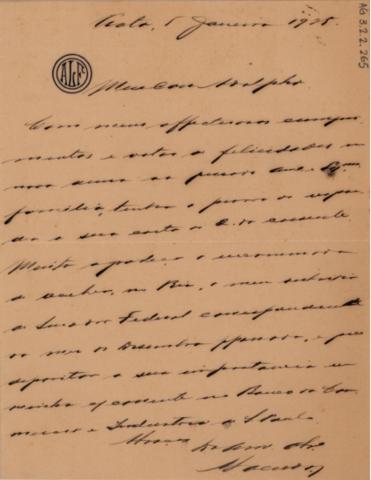 AG 3.2.2.265
5 Janeiro 1925
ALF
Meu caro Adolpho
Com meus affectuosos cumpri
mentos e votos de felicidades no
novo anno ao presado am.º e Ex.ma
familia, tenho o prazer de
a sua carta de 2 do corrente.
Muito agradeço o
de receber, no Rio, o meu subsidio
de Senador Federal correspondente
ao mez de Dezembro passado, e
depositar a sua importancia em
minha c/ corrente no Banco do Com
mercio e Industria de S. Paulo